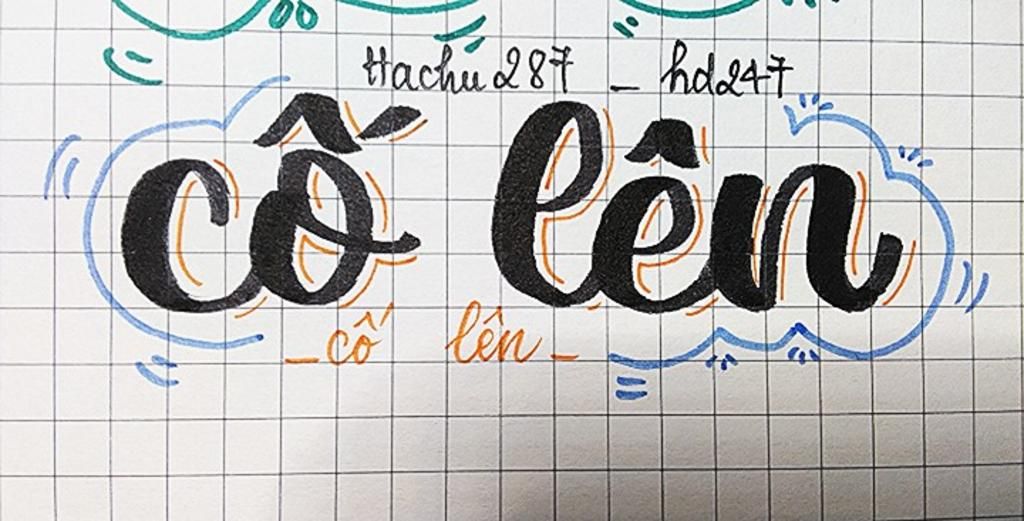 Hachu287 _ hd247
cố lên
_cố lên_